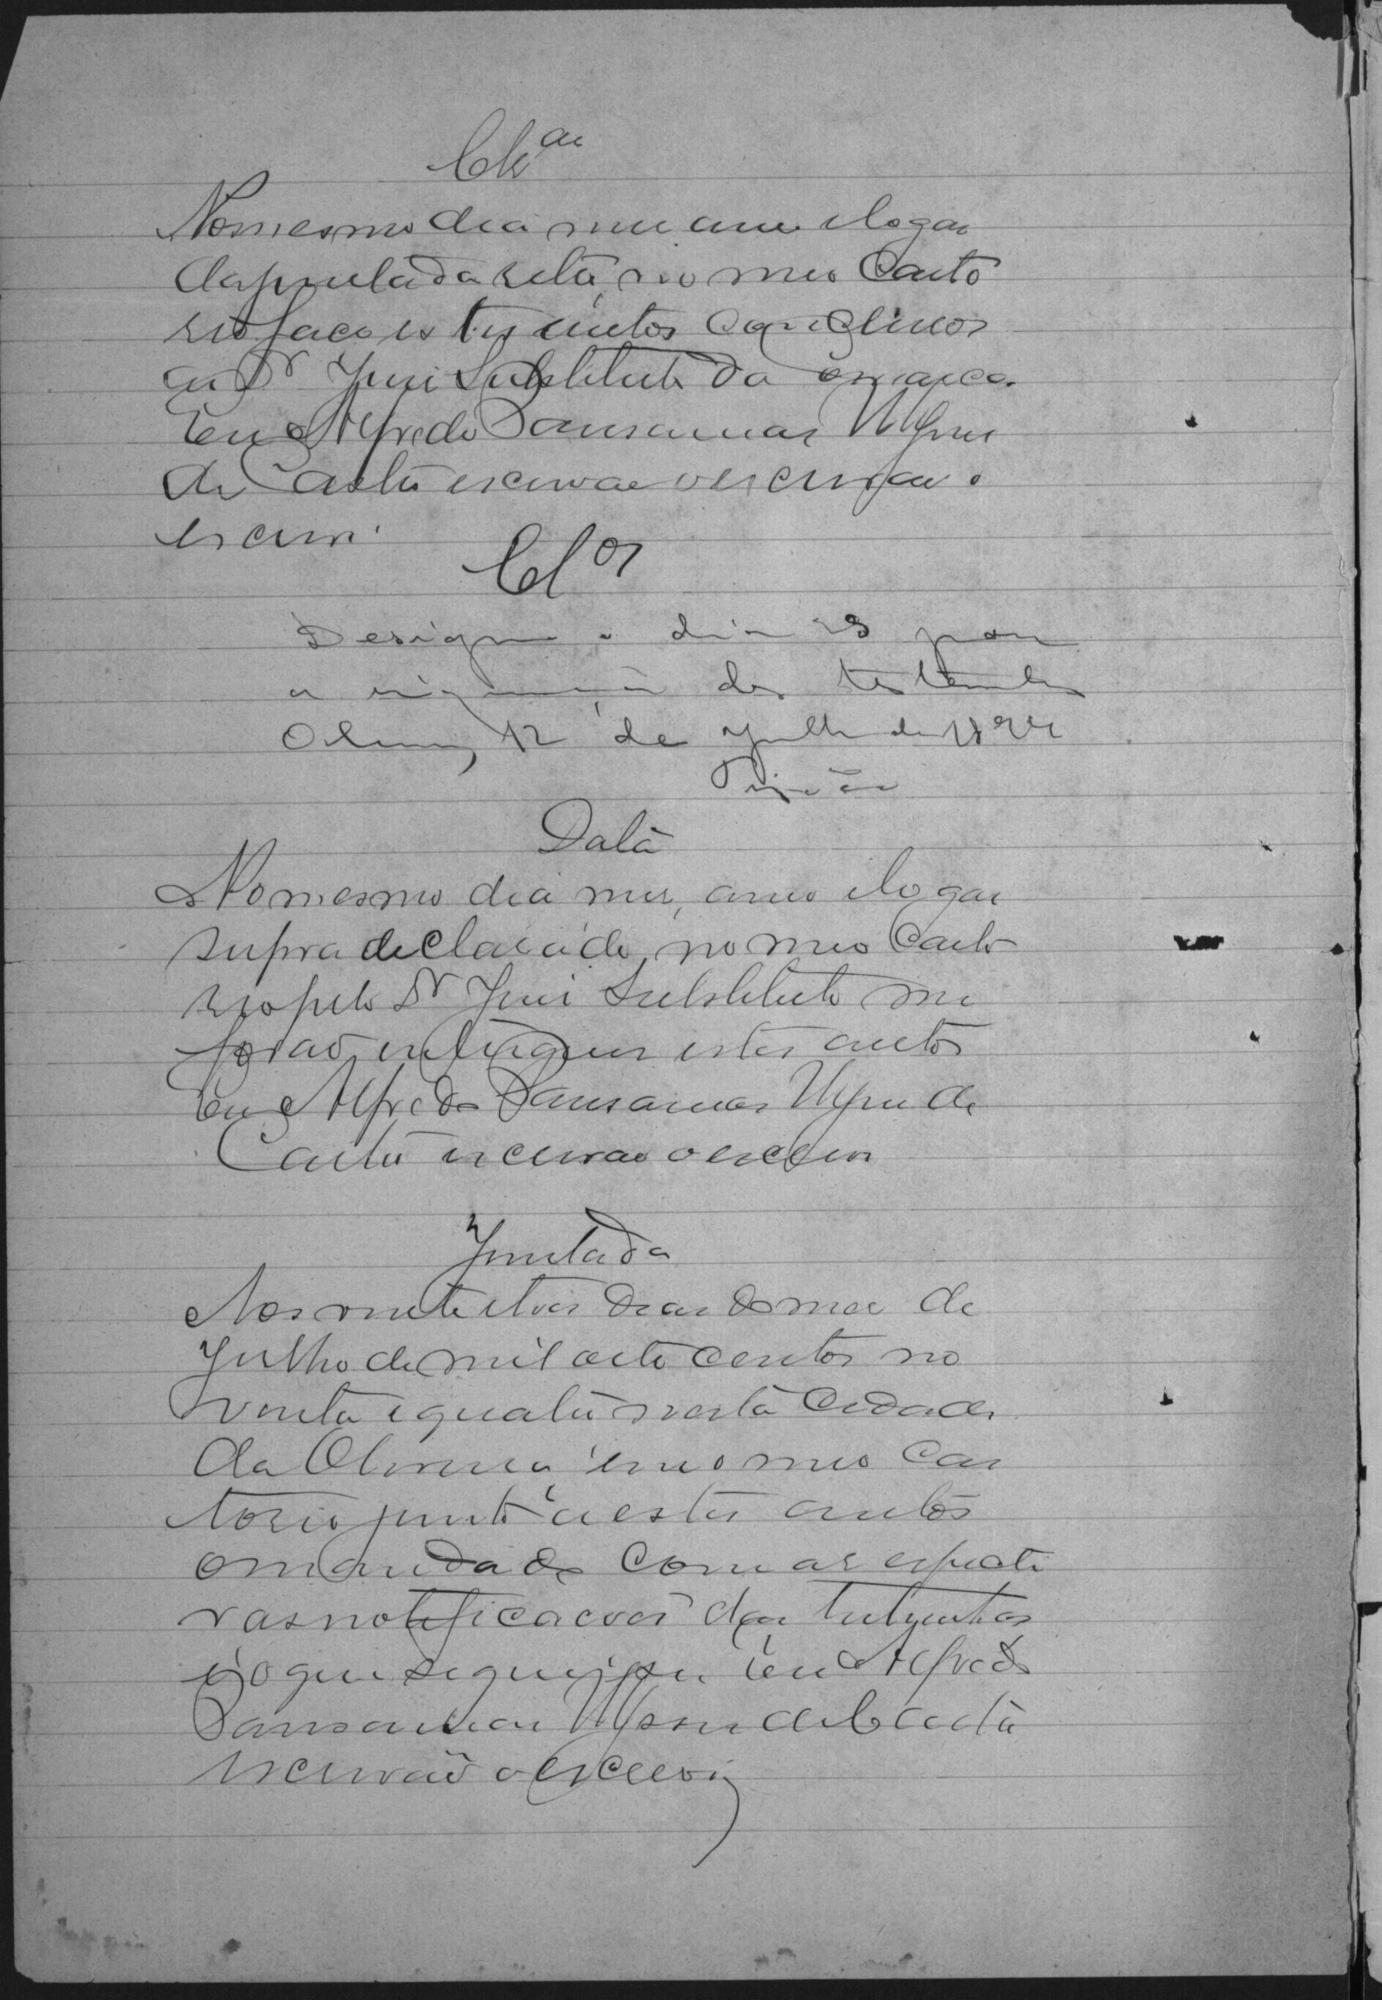 Clsão
No mesmo dia mes anno e logar
da juntada retro, no meu Carto
rio faço estes autos conclusos
ao Dr Juiz Substituto da Comarca.
Eu Alfredo
de Castro escrivão o escrevi
Clos
Designo o dia 23 para
a inquirição das testemunhas
Oliveira, 12 de Julho de 1894
Data
No mesmo dia mes, anno e logar
supra declarado, no meu Carto
rio pelo Dr Juiz Substituto me
forão entregues estes autos
Eu Alfredo de
Castro escrivão o escrevi
Juntada
Aos vinte e tres dias do mez de
Julho de mil oito centos no
venta e quatro nesta Cidade
da Oliveira em o meu Car
torio junto a estes autos
o mandado com as respecti
vas notificações das testemunhas
o que segue; Eu Alfredo
de Castro
escrivão o escrevi